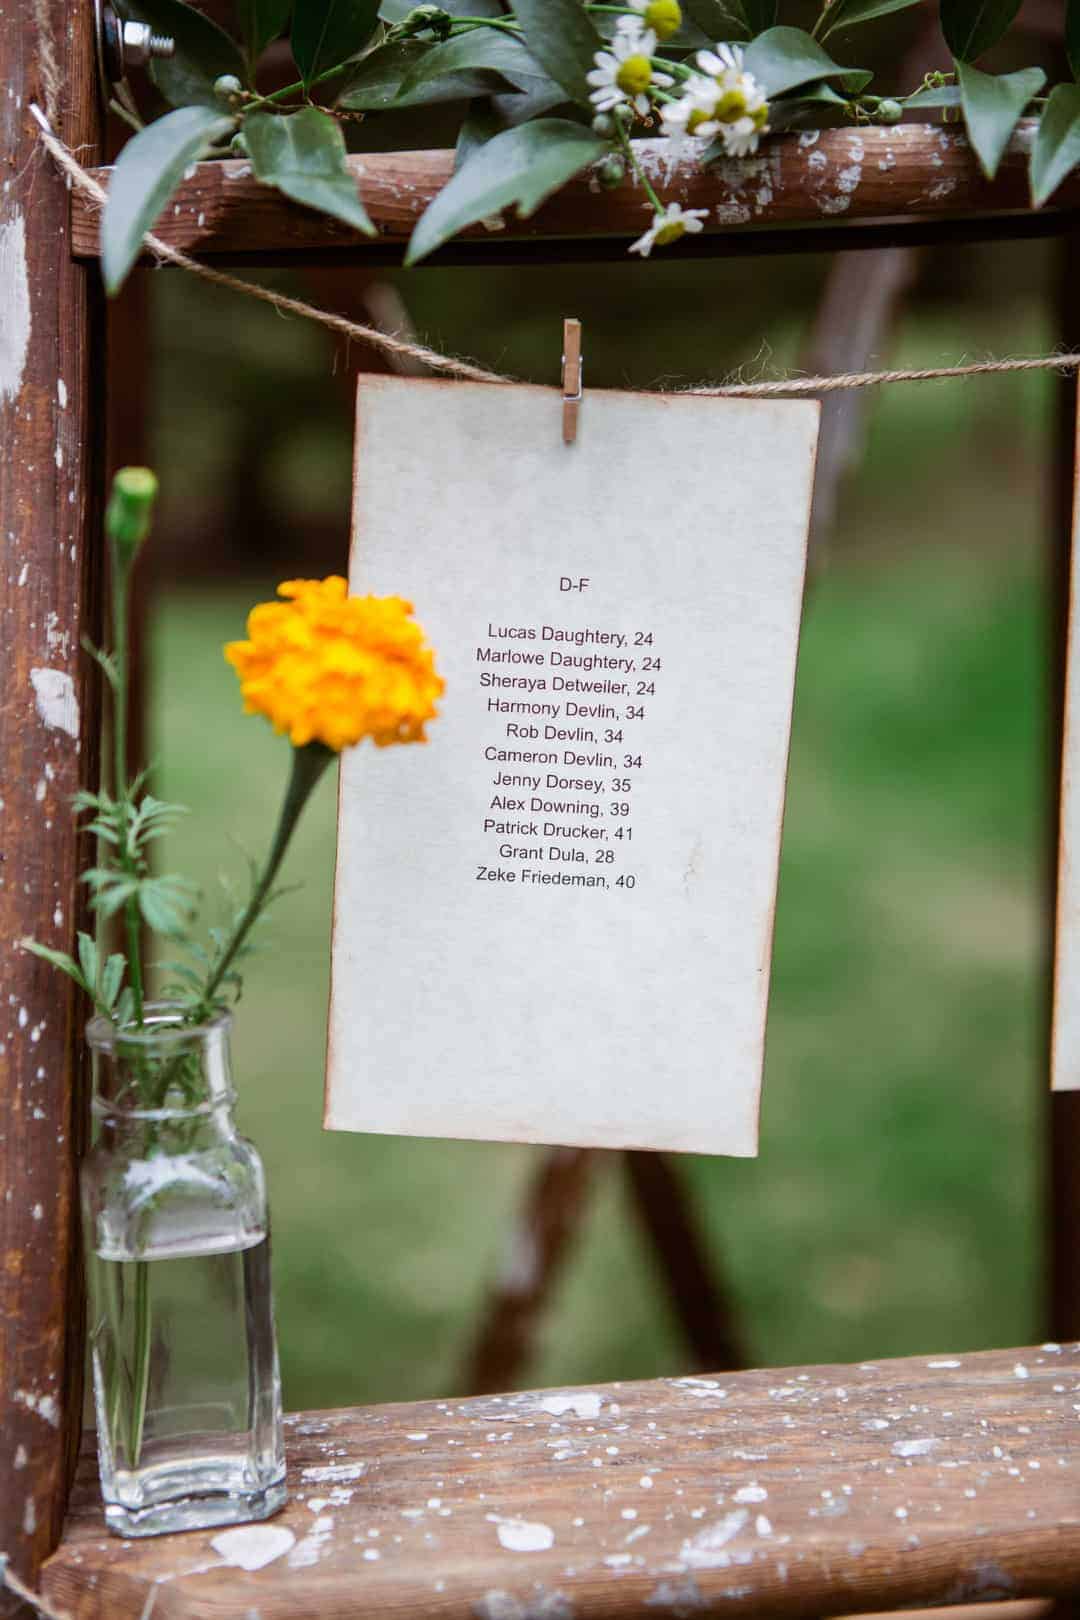 D-F
Lucas Daughtery, 24
Marlowe Daughtery, 24
Sheraya Detweiler, 24
Harmony Devlin, 34
Rob Devlin, 34
Cameron Devlin, 34
Jenny Dorsey, 35
Alex Downing, 39
Patrick Drucker, 41
Grant Dula, 28
Zeke Friedeman, 40